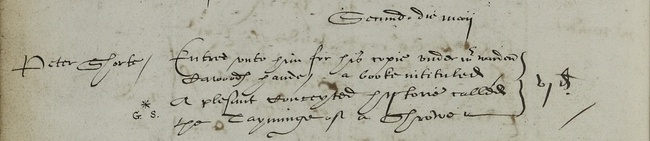 Secundo die maij
Peter Shorte / Entred vnto him for his copie vnder mr warden
Cawoodes hande / a booke intituled /
A plesant Conceyted historie called
the Tayminge of a Shrowe vjd
* G. S.